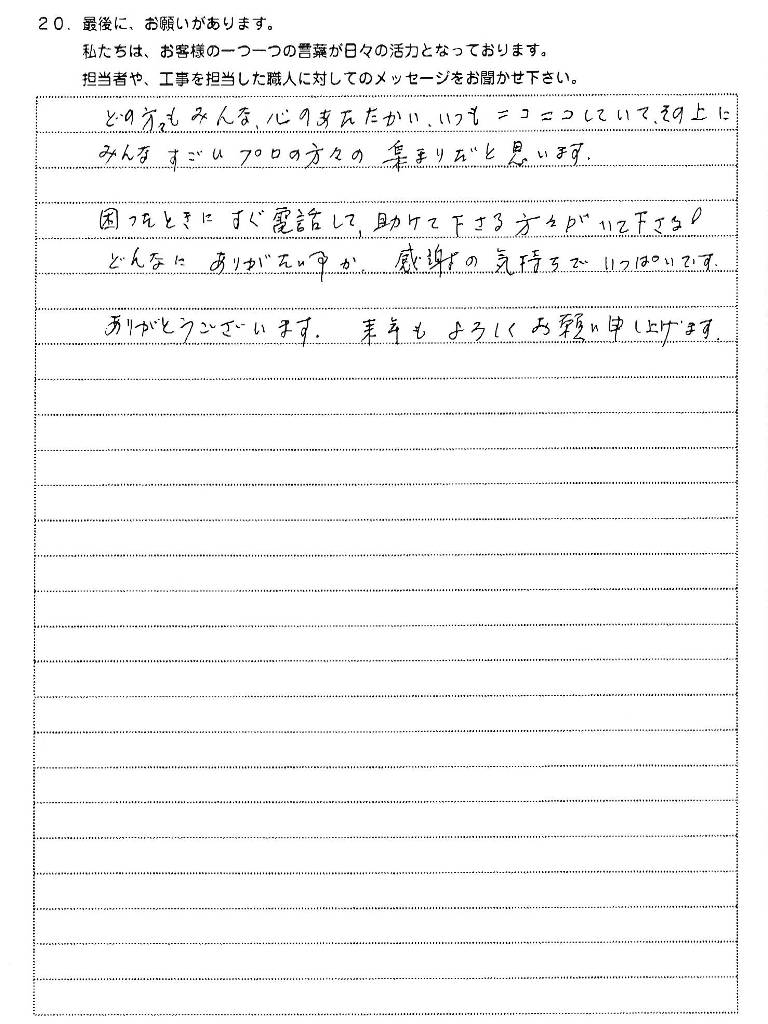 20. 最後に、お願いがあります。
私たちは、お客様の一つ一つの言葉が日々の活力となっております。
担当者や、工事を担当した職人に対してのメッセージをお聞かせ下さい。
どの方もみんな、心のあたたかい、いつもニコニコしていて、その上に
みんなすごいプロの方々の集まりだと思います.
困ったときにすぐ電話して、助けて下さる方々がいて下さる!
どんなにありがたい事か. 感謝の気持ちでいっぱいです.
ありがとうございます. 来年もよろしくお願い申し上げます.